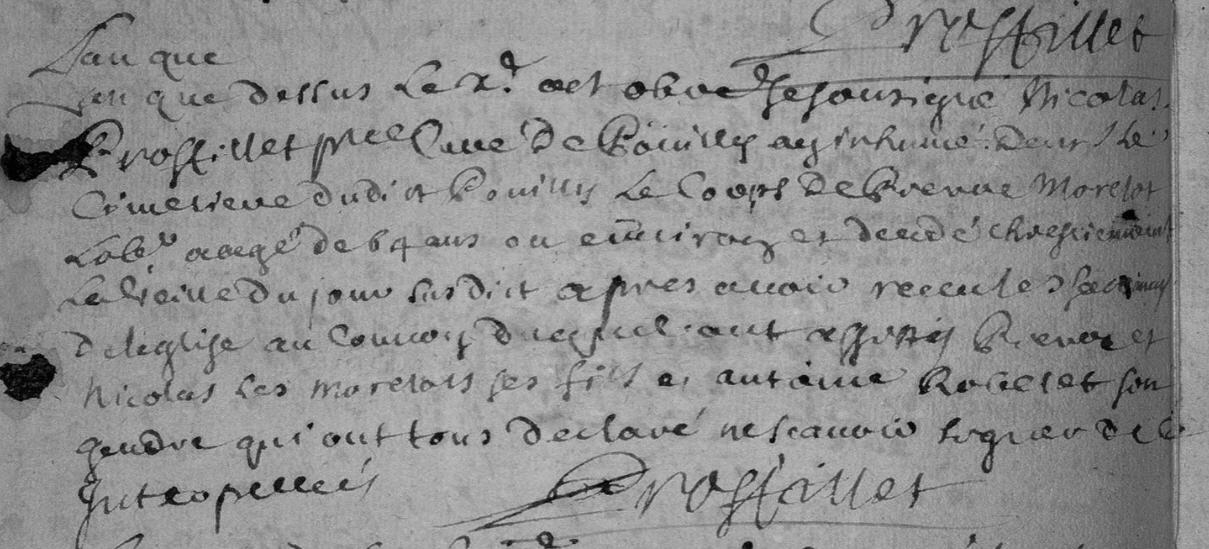 Prostillet
Lan que
Lan que dessus Le xe. octobre Je sousigné Nicolas
Prostillet pbre Curé de Pouilly ay inhumé dans Le
Cimetiere dudict Pouilly Le Corps de Pierre Morelot
Labr aagé de 64 ans ou environ et decedé chrestiennement
La veille du jour susdict apres avoir receu les sacremens
de leglise au Convoy duquel ont assistés Pierre et
Nicolas Les morelots ses fils et antoine Robelet son
gendre qui ont tous declaré ne scavoir signer de ce
Interpellés
Prostillet